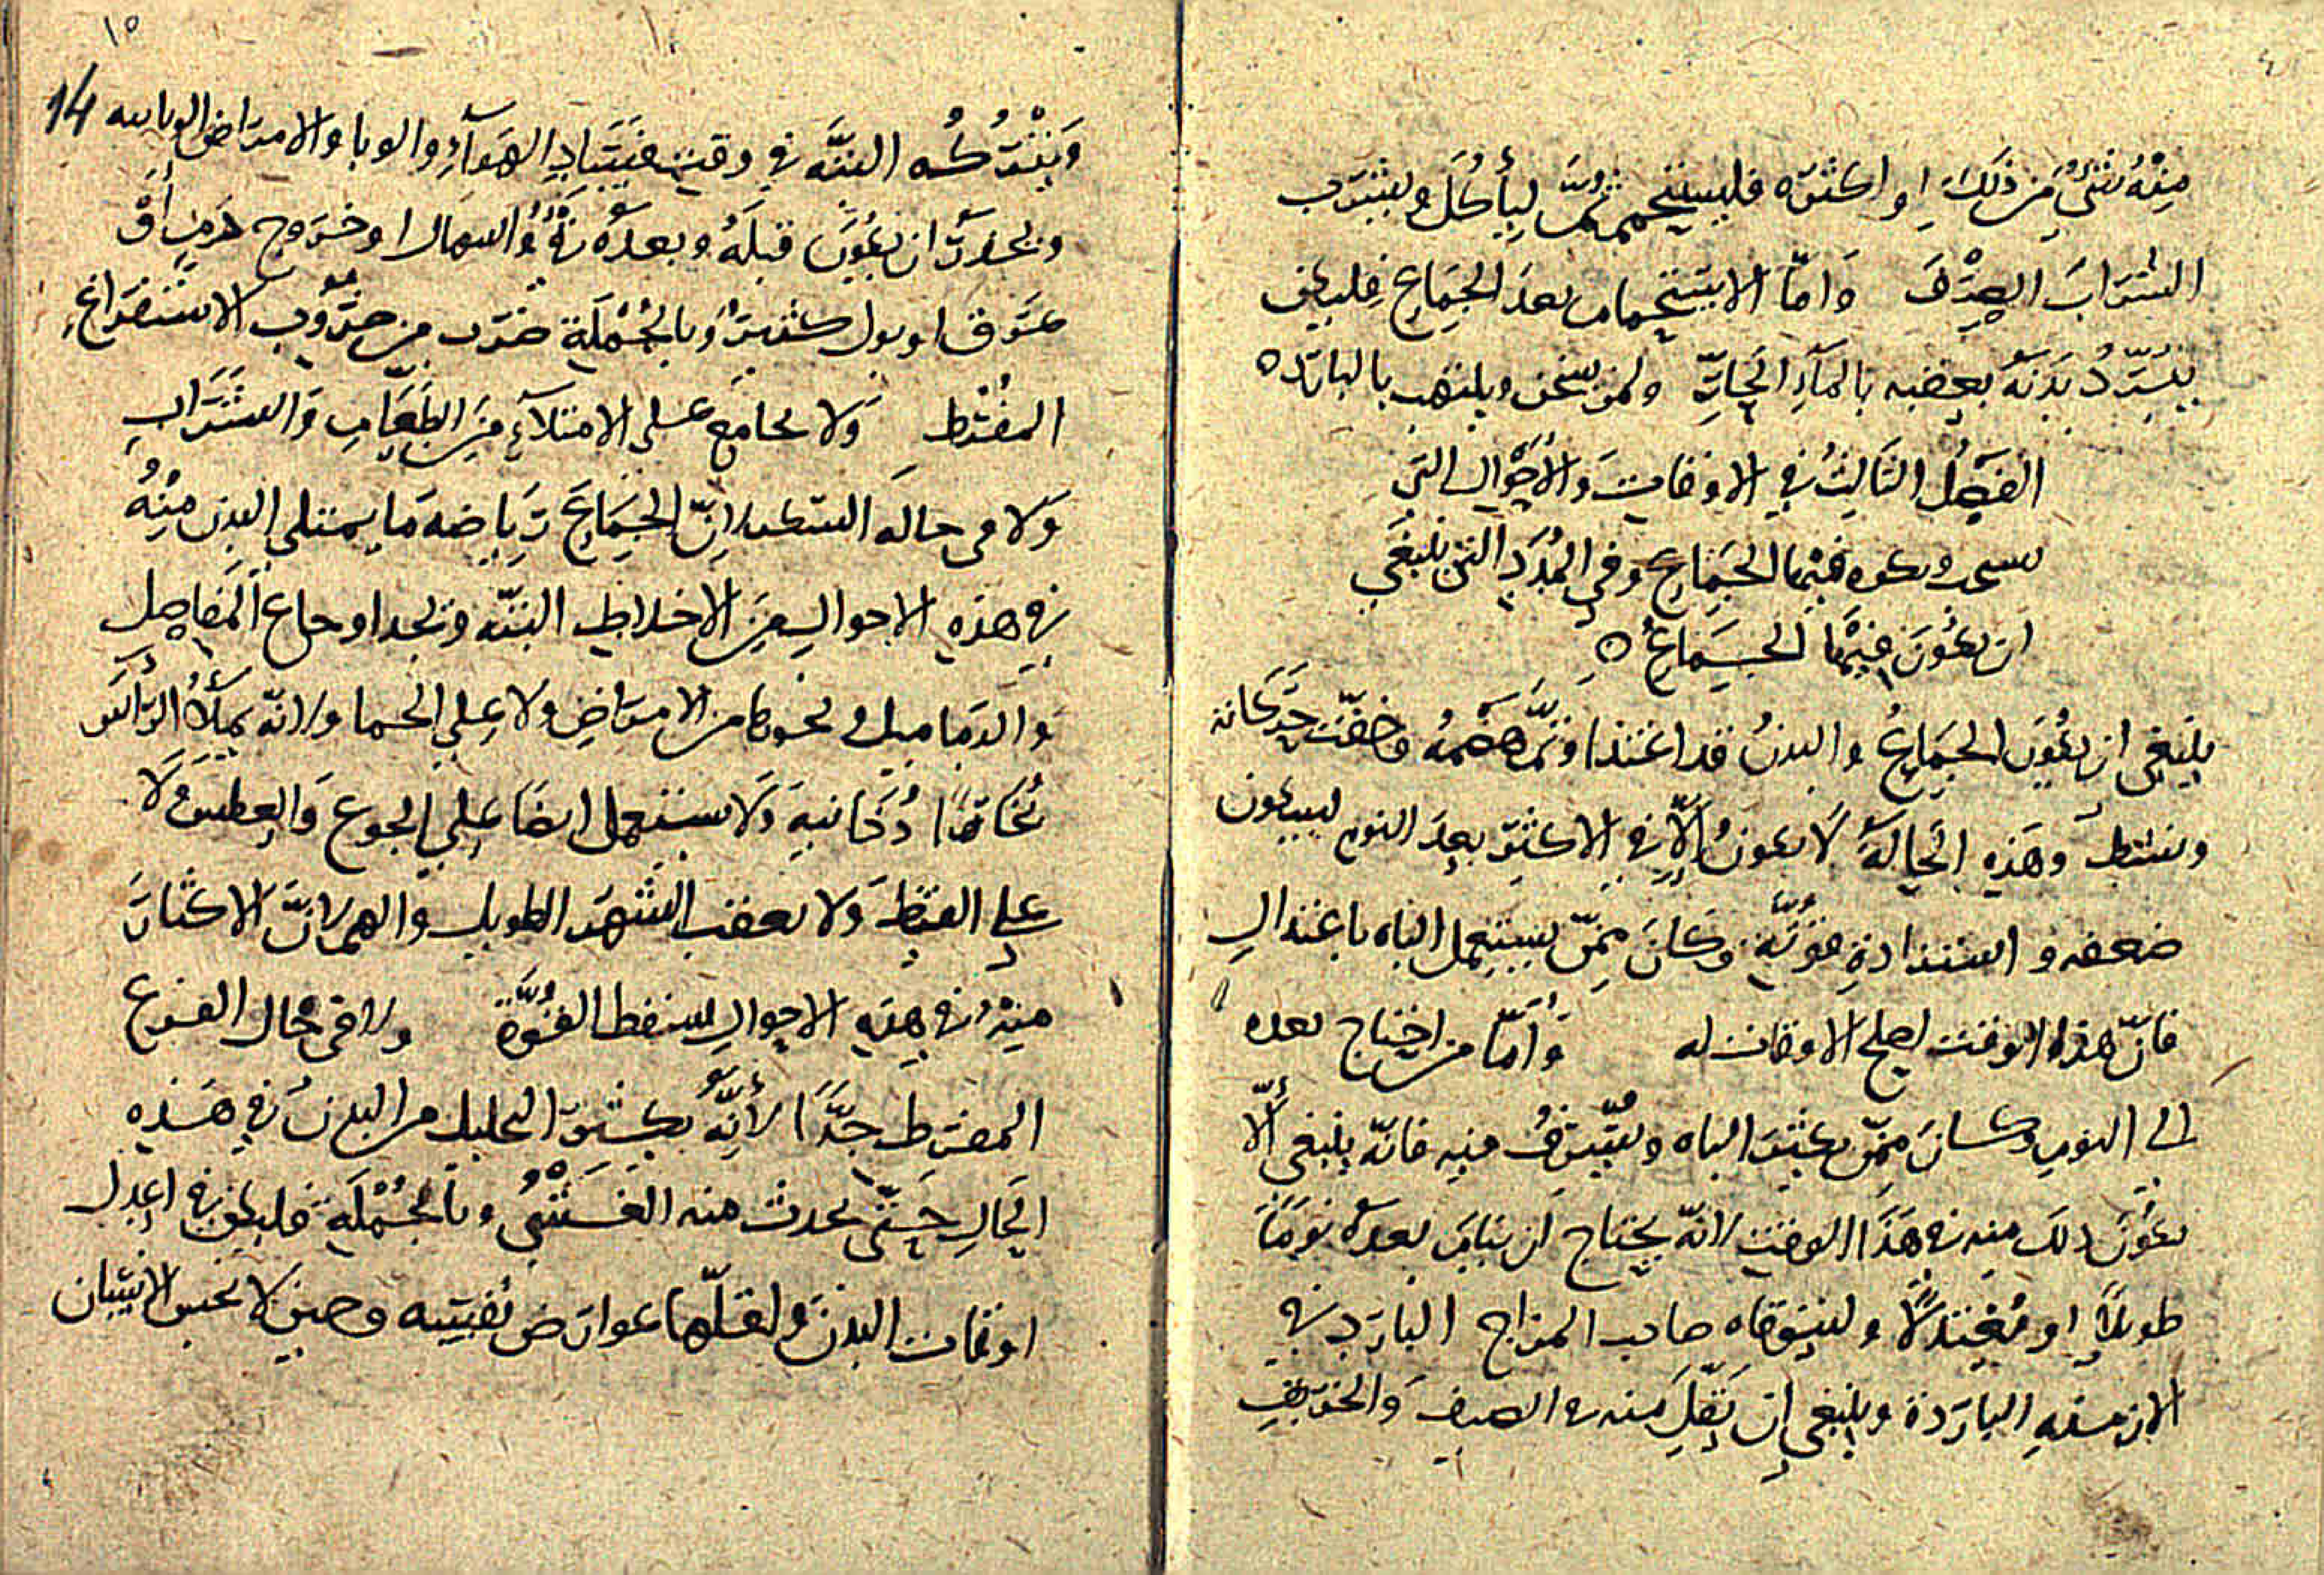 منه شيءٌ من ذلك او اكثره فليستحم ثمّ ليأكل ويشرب
الشراب الصِّرْف وَامّا الاستحمام بعدَ الجِمَاع فليكن
بدنه بعضه بالمآءِ الحارِّ ولمن سخن ويلتهب بالبارد ه
الفَصْلُ الثالِثُ في الاوقات وَالاحْوال التي
ويكره فيهَا الجِمَاع وفي المُدَدِ التي ينبغي
ان يكُونَ فيهَا الجِمَاعُ ه
ينبغي ان يكُون الجِمَاعُ والبدنُ قد اغتذا وتمَّ هضمهُ وخفّت حَرَكاته
ونشط وَهَذِهِ الحالةُ لَا يكونُ إلّا في الاكثرِ بعدَ النوم ليكون
ضعفه و استزادة قوّته وَكانَ مِمّن يستعمل الباه باعتدال
فانّ هذا الوقت اصلح الاوقات له وَأمّا من احتاج بعده
الي النوم وكانَ ممّن يكثر الباه ويُسْرِفُ فيه فانّه ينبغي ألّا
يكوُنَ ذلك منه في هَذَا الوقت لانّه يحتاج ان ينام بعدهُ نَومًا
طويلًا او مُعْتدلًا وليتوقاه صاحب المزاج البارد في
الازمنةِ البارَدة وينبغي ان يقلّل منه في الصيف وَالخريفِ
١٥
14
وَيَتْرُكُه البتّه في وقت فسَادِ الهوَآءِ والوبا والامراض الوبايه
ويحذرُ ان يكُون قبلَهُ وبعدهُ قيْءٌ واسهال او خروج دَم أوْ
عَرَق او بول كثيرٌ وبالجُمْلَة ضرب من ضُرُوب الاستفرَاغ
المفْرط وَلا يجامع علي الامتلآءِ مِنَ الطَعَامِ وَالشَرَابِ
وَلا في حالَه السكر لِانّ الجِمَاعَ رِيَاضه مَا يمتلي البدن مِنْهُ
في هذه الاحوالِ مِنَ الاخلاط البتّه ويحد اوجاع المفَاصِل
وَالدمَاميل ونحوها من الامرَاضِ ولا علي الحما لانّه يَمْلَأُ الرأس
بُخَارًا دُخَانيه وَلا يستعمل ايضَا علي الجوع وَالعطش وَلَا
علي وَلا بعقب السّهَر الطويل والهم لانّ الاكثارَ
مِنهُ في هذهِ الاحوال يسقط القوّة ولا في حال الفزع
المفرط جدًّا لأنّهُ يكثر التحليل من البدنُ في هَذه
الحَالِ حَتّى يحدث منه الغَشْيُ وبالجُمْلَةِ فليكن في اعدل
اوقات البدن واقلّها عوارض نفسيه وحين لا يحس الانسان